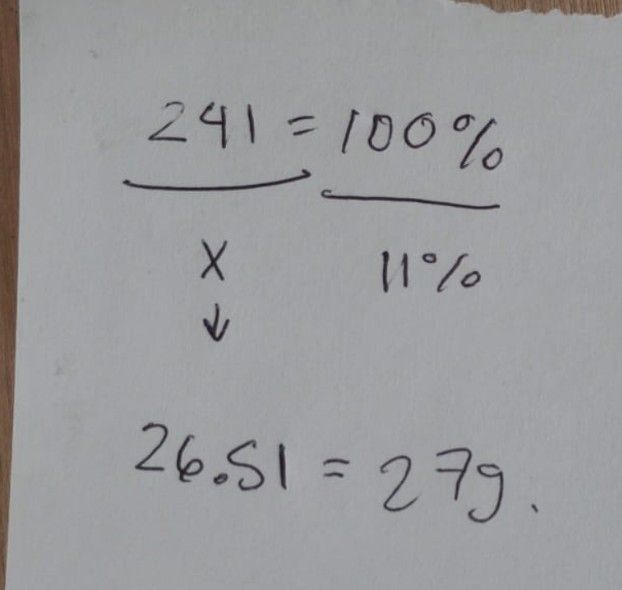 241 = 100%
X 11%
↓
26.51 = 27g.